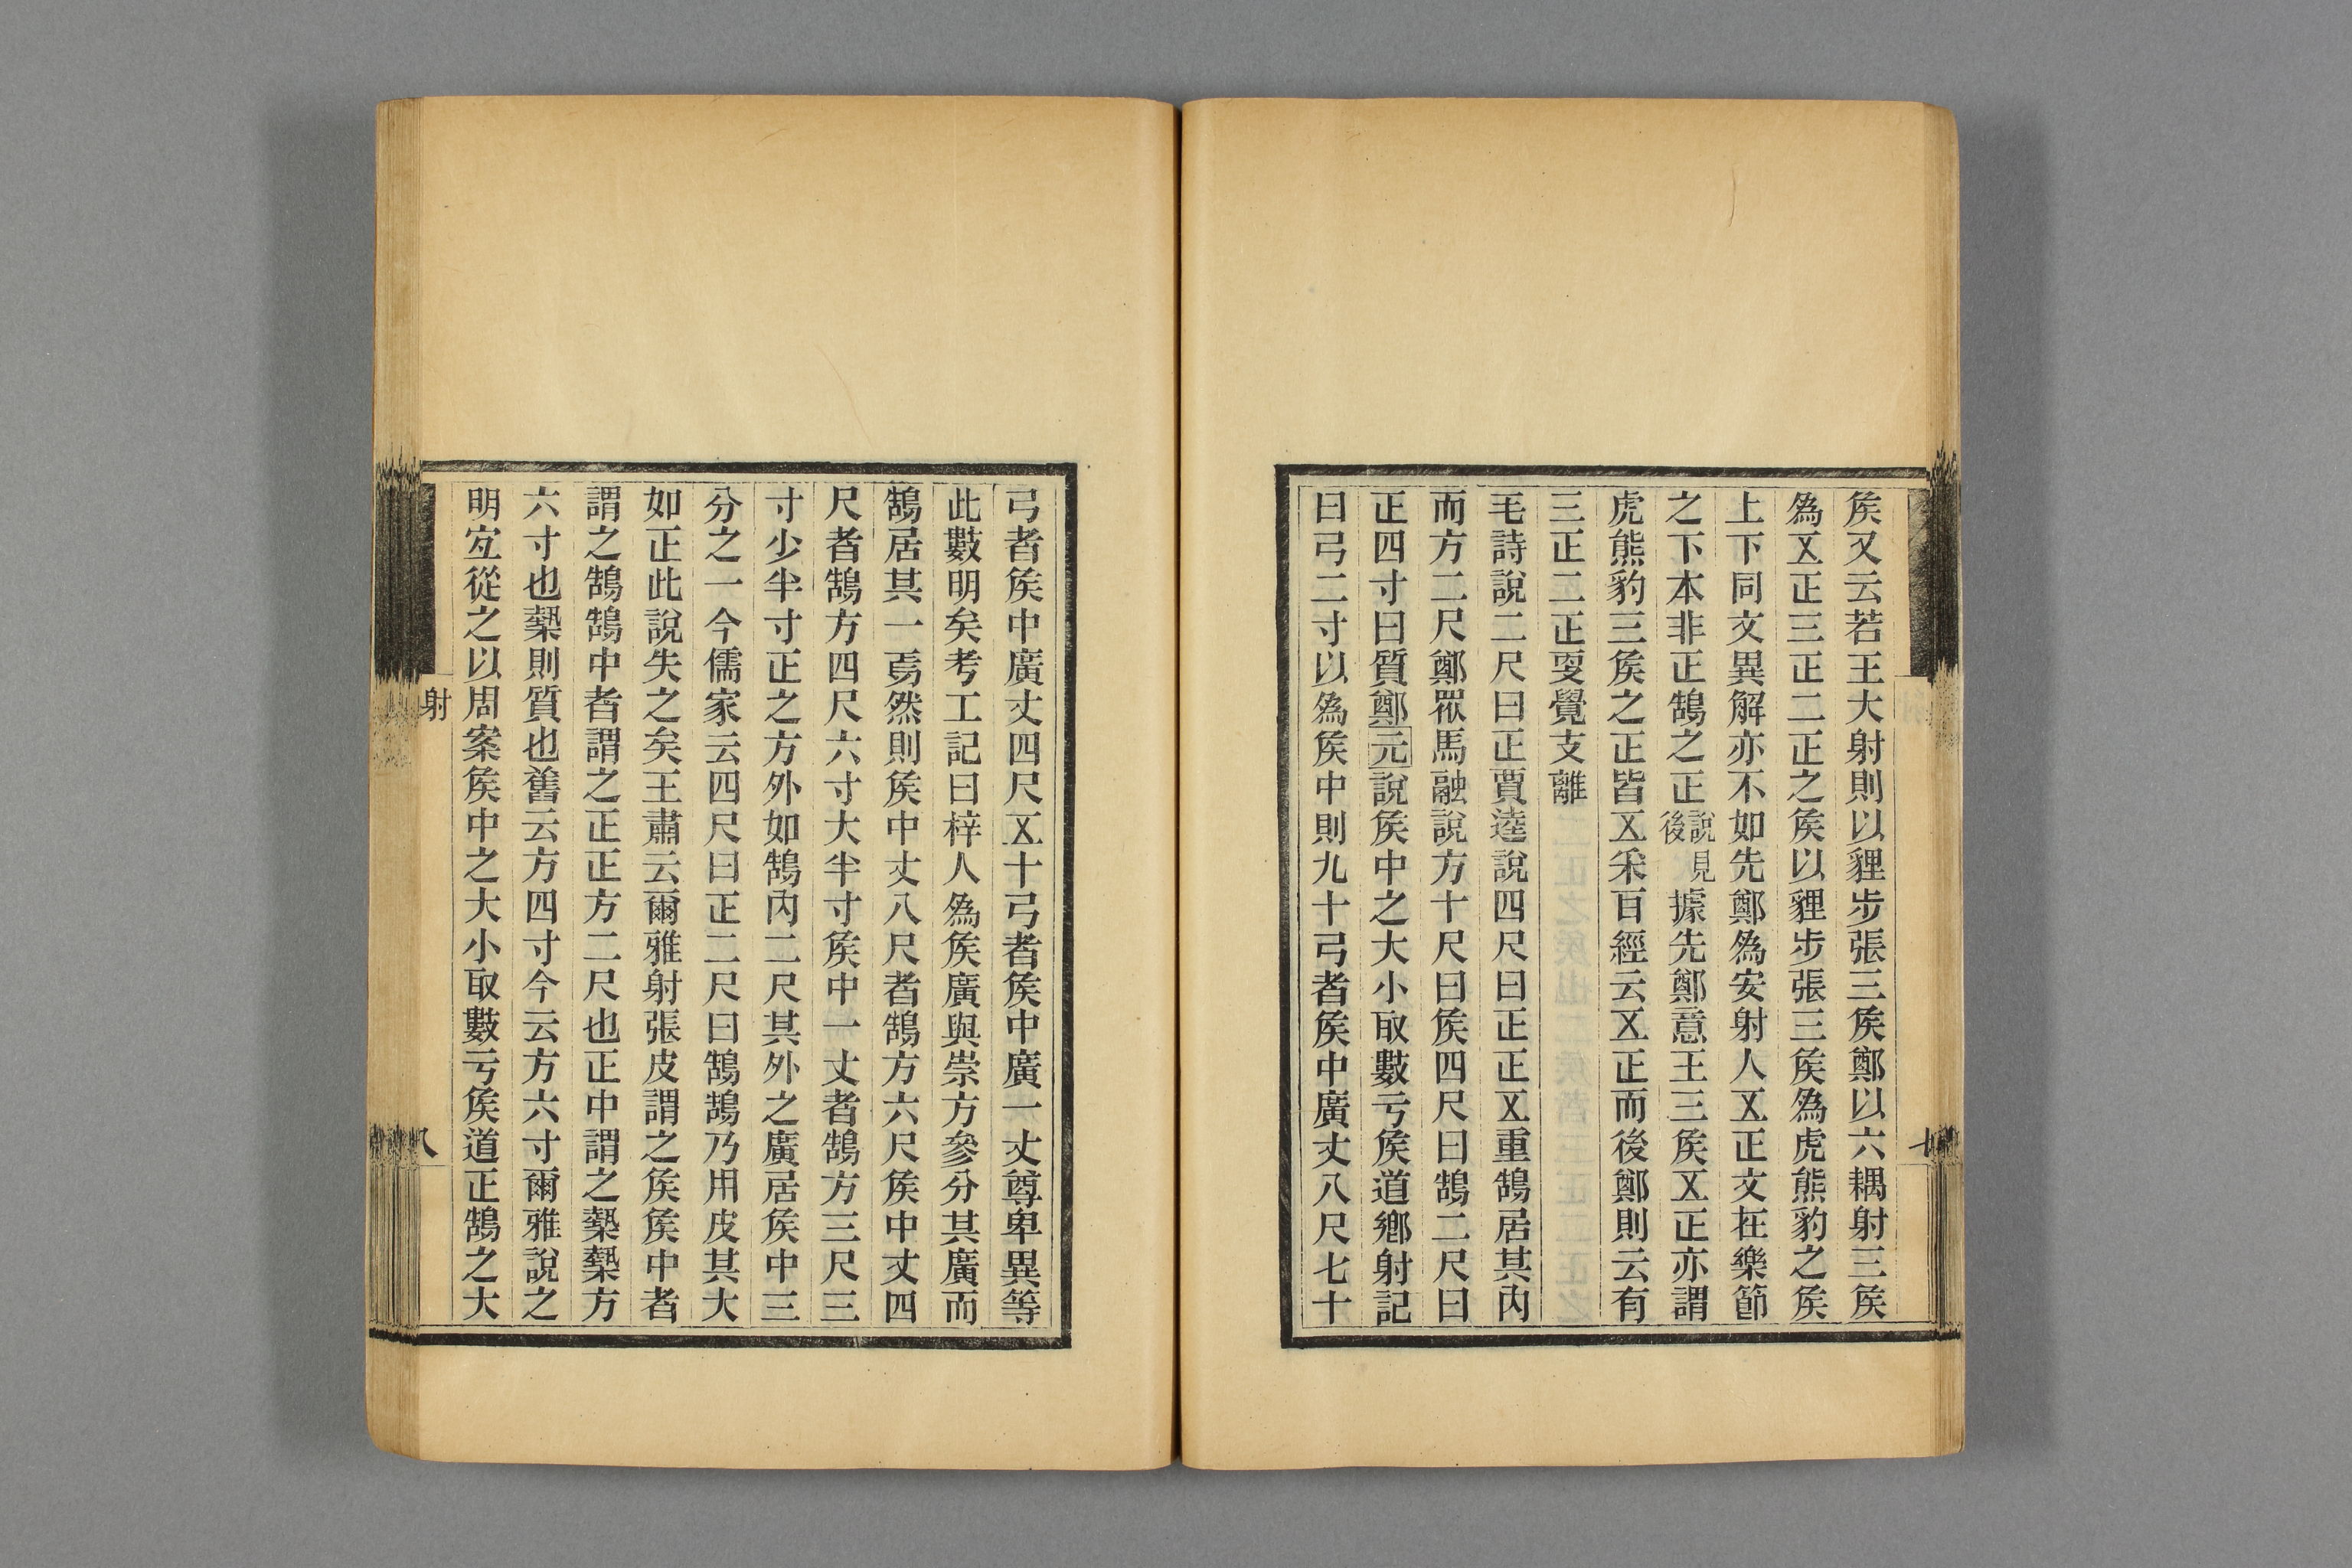 矦又云若王大射則以貍步張三矦鄭以六耦射三矦
爲㐅正三正二正之矦以貍步張三矦爲虎熊豹之矦
上下同文異解亦不如先鄭爲安射人㐅正文在樂節
之下本非正鵠之正說見後據先鄭意王三矦㐅正亦謂
虎熊豹三矦之正皆㐅采百經云㐅正而後鄭則云有
三正二正叓覺支離
毛詩說二尺曰正賈逵說四尺曰正正㐅重鵠居其內
而方二尺鄭眾馬融說方十尺曰矦四尺曰鵠二尺曰
正四寸曰質鄭元說矦中之大小取數亏矦道鄉射記
曰弓二寸以爲矦中則九十弓者矦中廣丈八尺七十
弓者矦中廣丈四尺㐅十弓者矦中廣一丈尊卑異等
此數明矣考工記曰梓人爲矦廣與崇方參分其廣而
鵠居其一焉然則矦中丈八尺者鵠方六尺矦中丈四
尺者鵠方四尺六寸大半寸矦中一丈者鵠方三尺三
寸少半寸正之方外如鵠內二尺其外之廣居矦中三
分之一今儒家云四尺曰正二尺曰鵠鵠乃用皮其大
如正此說失之矣王肅云爾雅射張皮謂之矦矦中者
謂之鵠鵠中者謂之正正方二尺也正中謂之槷槷方
六寸也槷則質也舊云方四寸今云方六寸爾雅說之
明宐從之以周案矦中之大小取數亏矦道正鵠之大
射
八